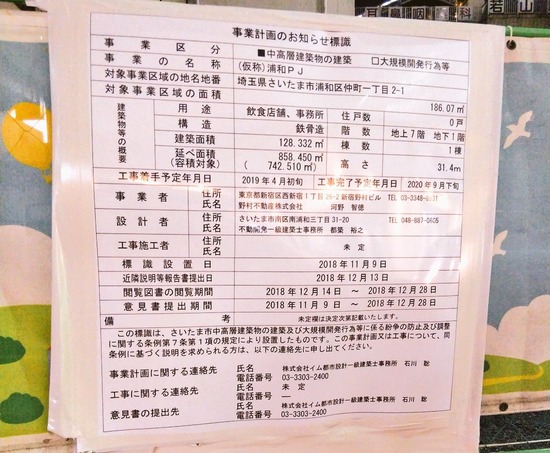 耳鼻咽喉科
若山
事業計画のお知らせ標識
事業区分 ■中高層建築物の建築 □大規模開発行為等
事業の名称 (仮称)浦和PJ
対象事業区域の地名地番 埼玉県さいたま市浦和区仲町一丁目2-1
対象事業区域の面積 186.07㎡
建築物等の概要
用途 飲食店舗、事務所 住戸数 0戸
構造 鉄骨造 階数 地上7階 地下1階
建築面積 128.332㎡ 棟数 1棟
延べ面積 858.450㎡ 高さ 31.4m
(容積対象) ( 742.510㎡)
工事着手予定年月日 2019年4月初旬 工事完了予定年月日 2020年9月下旬
事業者 住所 東京都新宿区西新宿1丁目26-2新宿野村ビル TEL 03-3348-
氏名 野村不動産株式会社 河野 智徳
設計者 住所 さいたま市南区南浦和三丁目31-20 TEL 048-887-0605
氏名 不動開発一級建築士事務所 都築 裕之
工事施工者 住所 未定
氏名
標識設置日 2018年11月9日
近隣説明等報告書提出日 2018年12月13日
閲覧図書の閲覧期間 2018年12月14日 ～ 2018年12月28日
意見書提出期間 2018年11月9日 ～ 2018年12月28日
備考 未定欄は決定次第記載いたします。
この標識は、さいたま市中高層建築物の建築及び大規模開発行為等に係る紛争の防止及び調整
に関する条例第7条第1項の規定により設置したものです。この事業計画又は工事について、同
条例に基づく説明を求められる方は、以下の連絡先に申し出てください。
事業計画に関する連絡先 氏名 株式会社イム都市設計一級建築士事務所 石川 聡
電話番号 03-3303-2400
工事に関する連絡先 氏名 未定
電話番号 ―
意見書の提出先 氏名 株式会社イム都市設計一級建築士事務所 石川 聡
電話番号 03-3303-2400